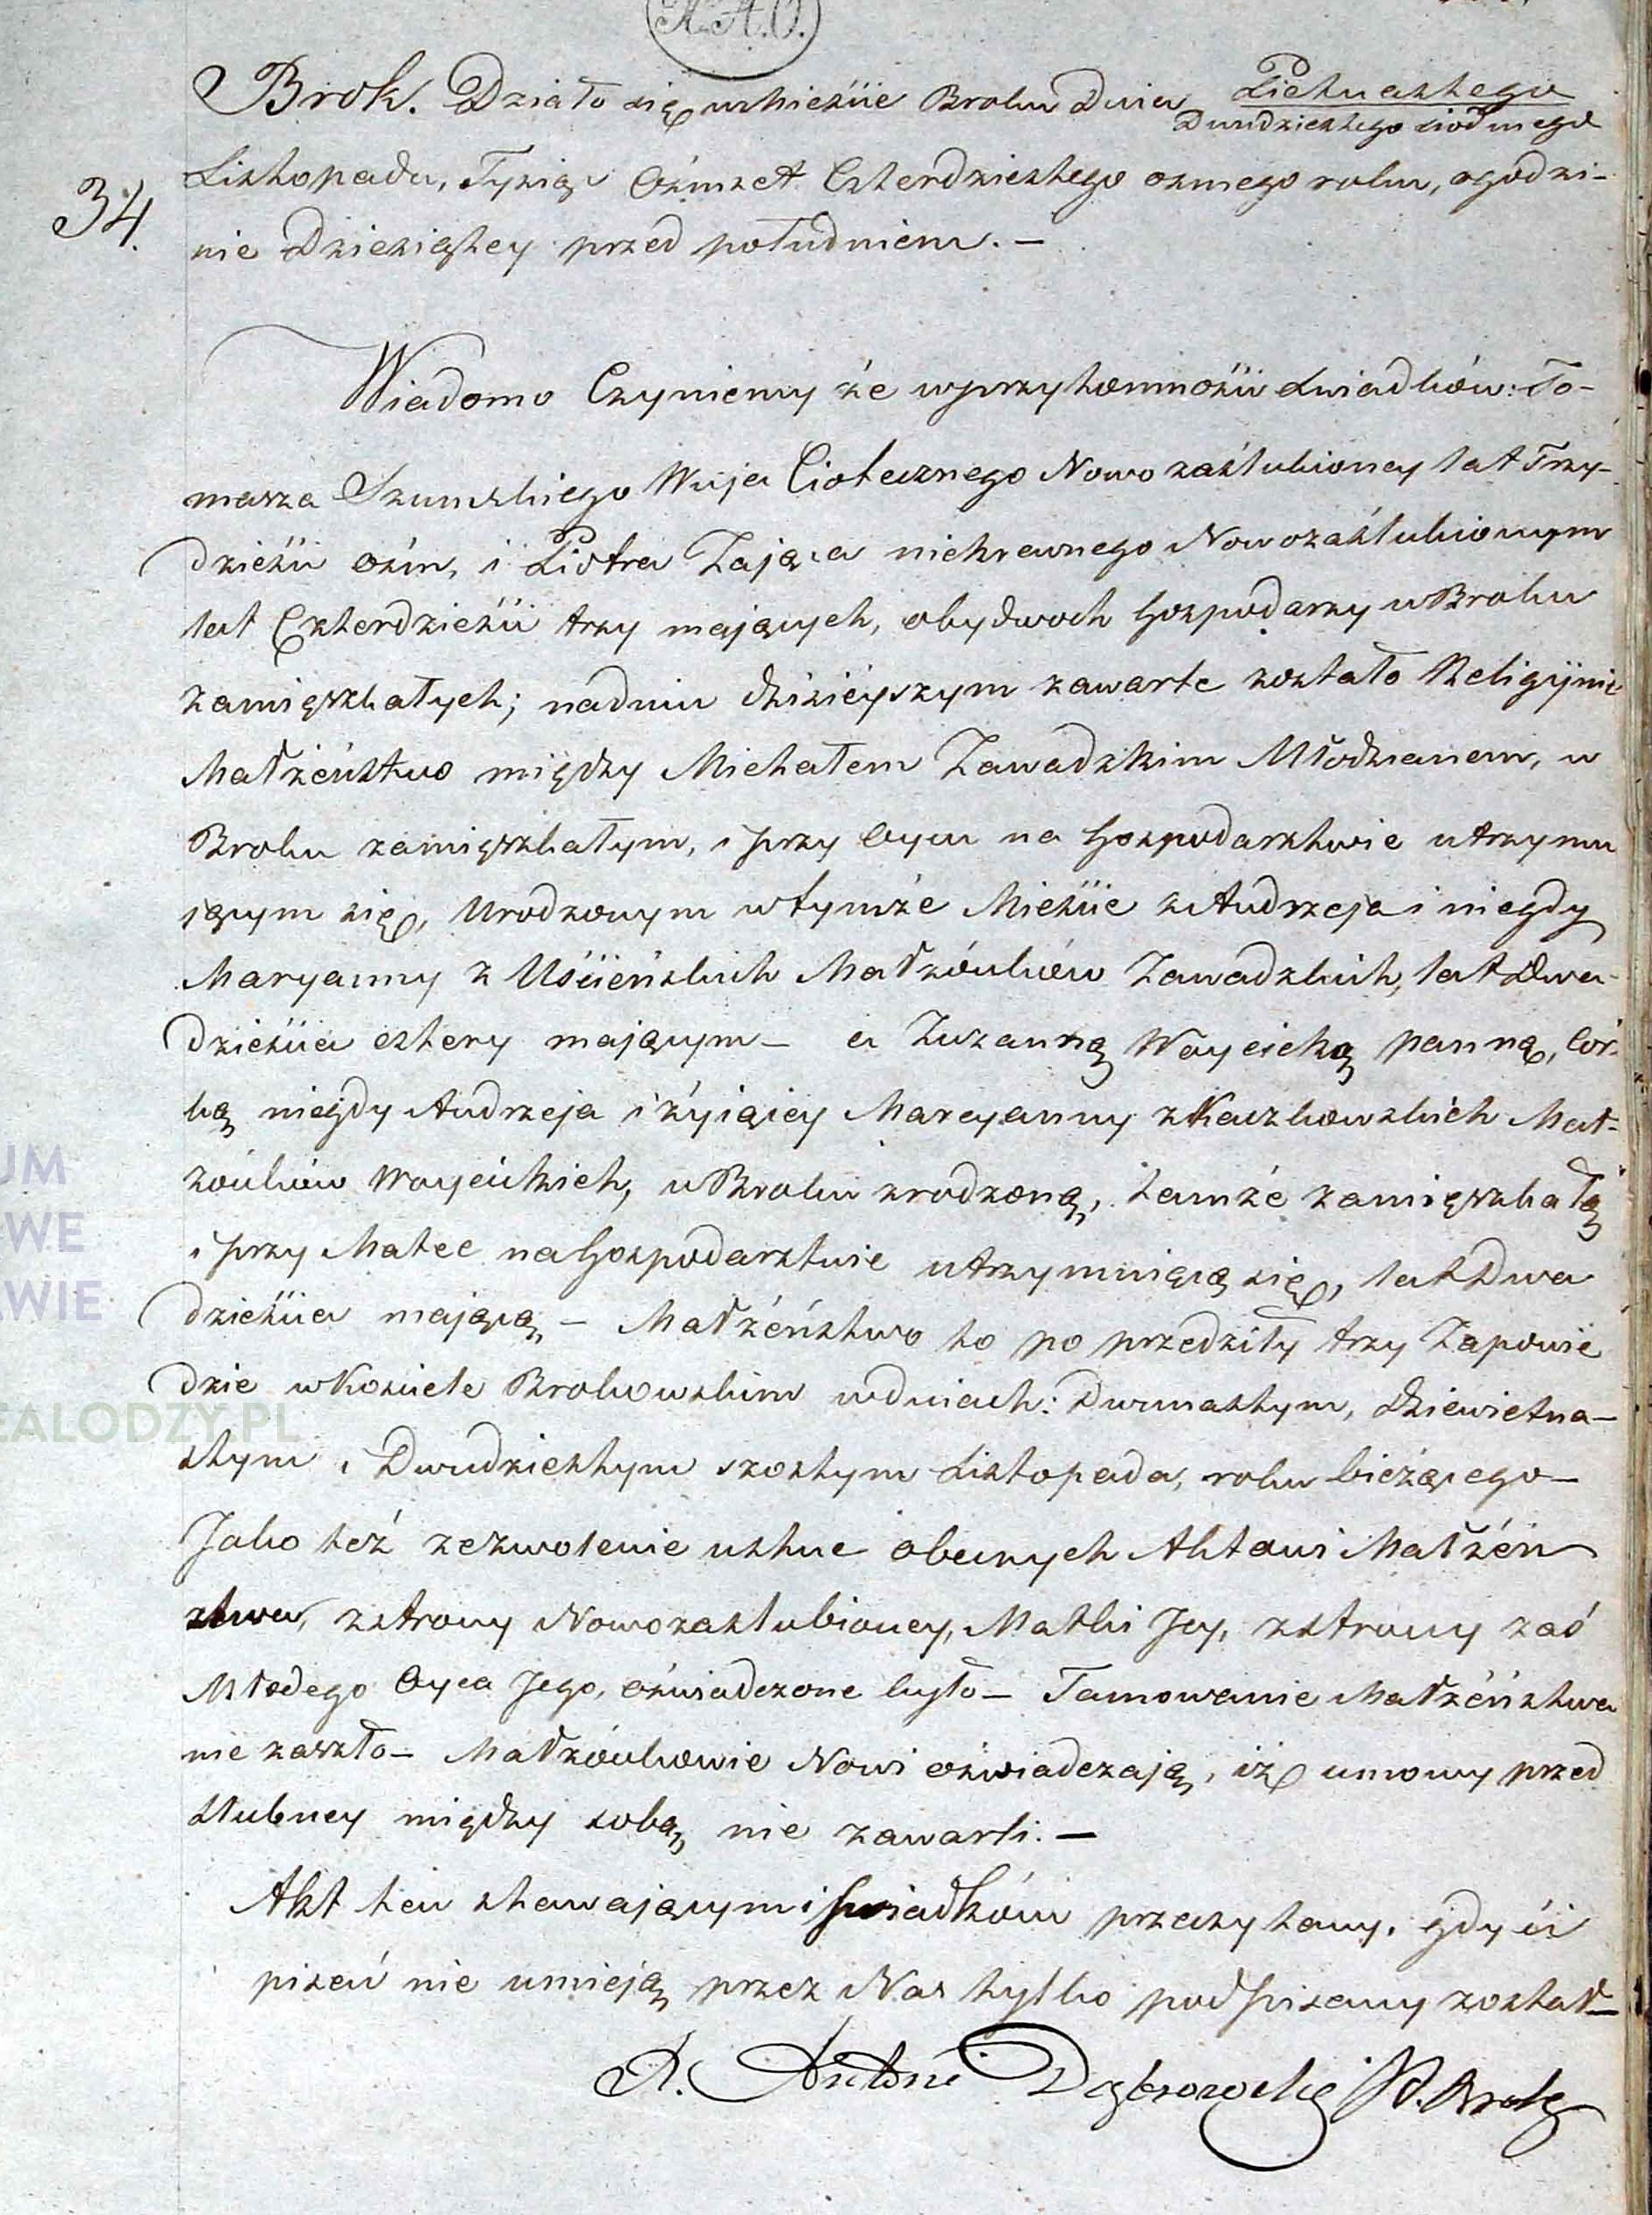 A.A.O.
Brok. Działo się w mieście Broku Dnia Piętnastego
Dwudziestego siódmego
34.
Listopada, Tysiąc Ośmset Czterdziestego osmego roku, o godzi-
nie Dziesiątey przed południem. —
Wiadomo Czyniemy że w przytomności świadków: To-
masza Szumskiego Wuja Ciotecznego Nowo zaślubioney lat Trzy-
dzieści ośm, i Piotra Zająca niekrewnego Nowozaślubionym
lat Czterdzieści trzy mających, obydwoch Gospodarzy w Broku
zamięszkałych; na dniu dzisieyszym zawarte zostało Religijnie
Małżeństwo między Michałem Zawadzkim Młodzianem, w
Broku zamięszkałym, i przy Oycu na Gospodarstwie utrzymu
jącym się, Urodzonym w tymże Mieście z Andrzeja i niegdy
Maryanny z Uścieńskich Małżonków Zawadzkich, lat Dwa-
dzieścia cztery mającym — a Zuzanną Woycicką panną, Cór-
ką niegdy Andrzeja i żyiącey Maryanny z Kaczkowskich Mał-
żonków Woycickich, w Broku zrodzoną, tamże zamięszkałą
i przy Matce na Gospodarstwie utrzymuiącą się, lat Dwa
dzieścia mającą — Małżeństwo to po przedziły trzy Zapowie
dzie w Kosciele Brokowskim w dniach: Dwunastym, dziewietna-
stym i Dwudziestym szostym Listopada, roku bieżącego —
Jako też zezwolenie ustne obecnych Aktowi Małżeń
stwa, z strony Nowozaslubioney, Matki Jey, z strony zaś
Młodego Oyca Jego, oświadczone było — Tamowanie Małżeństwa
nie zaszło — Małżonkowie Nowi oświadczają, iż umowy przed
slubney między sobą nie zawarli. —
Akt ten stawającym i swiadkom przeczytany, gdy ci
pisać nie umieją przez Nas tylko podpisany został —
X. Antoni Dąbrowski P. Brok
UM
WE
AWIE
EALODZY.PL